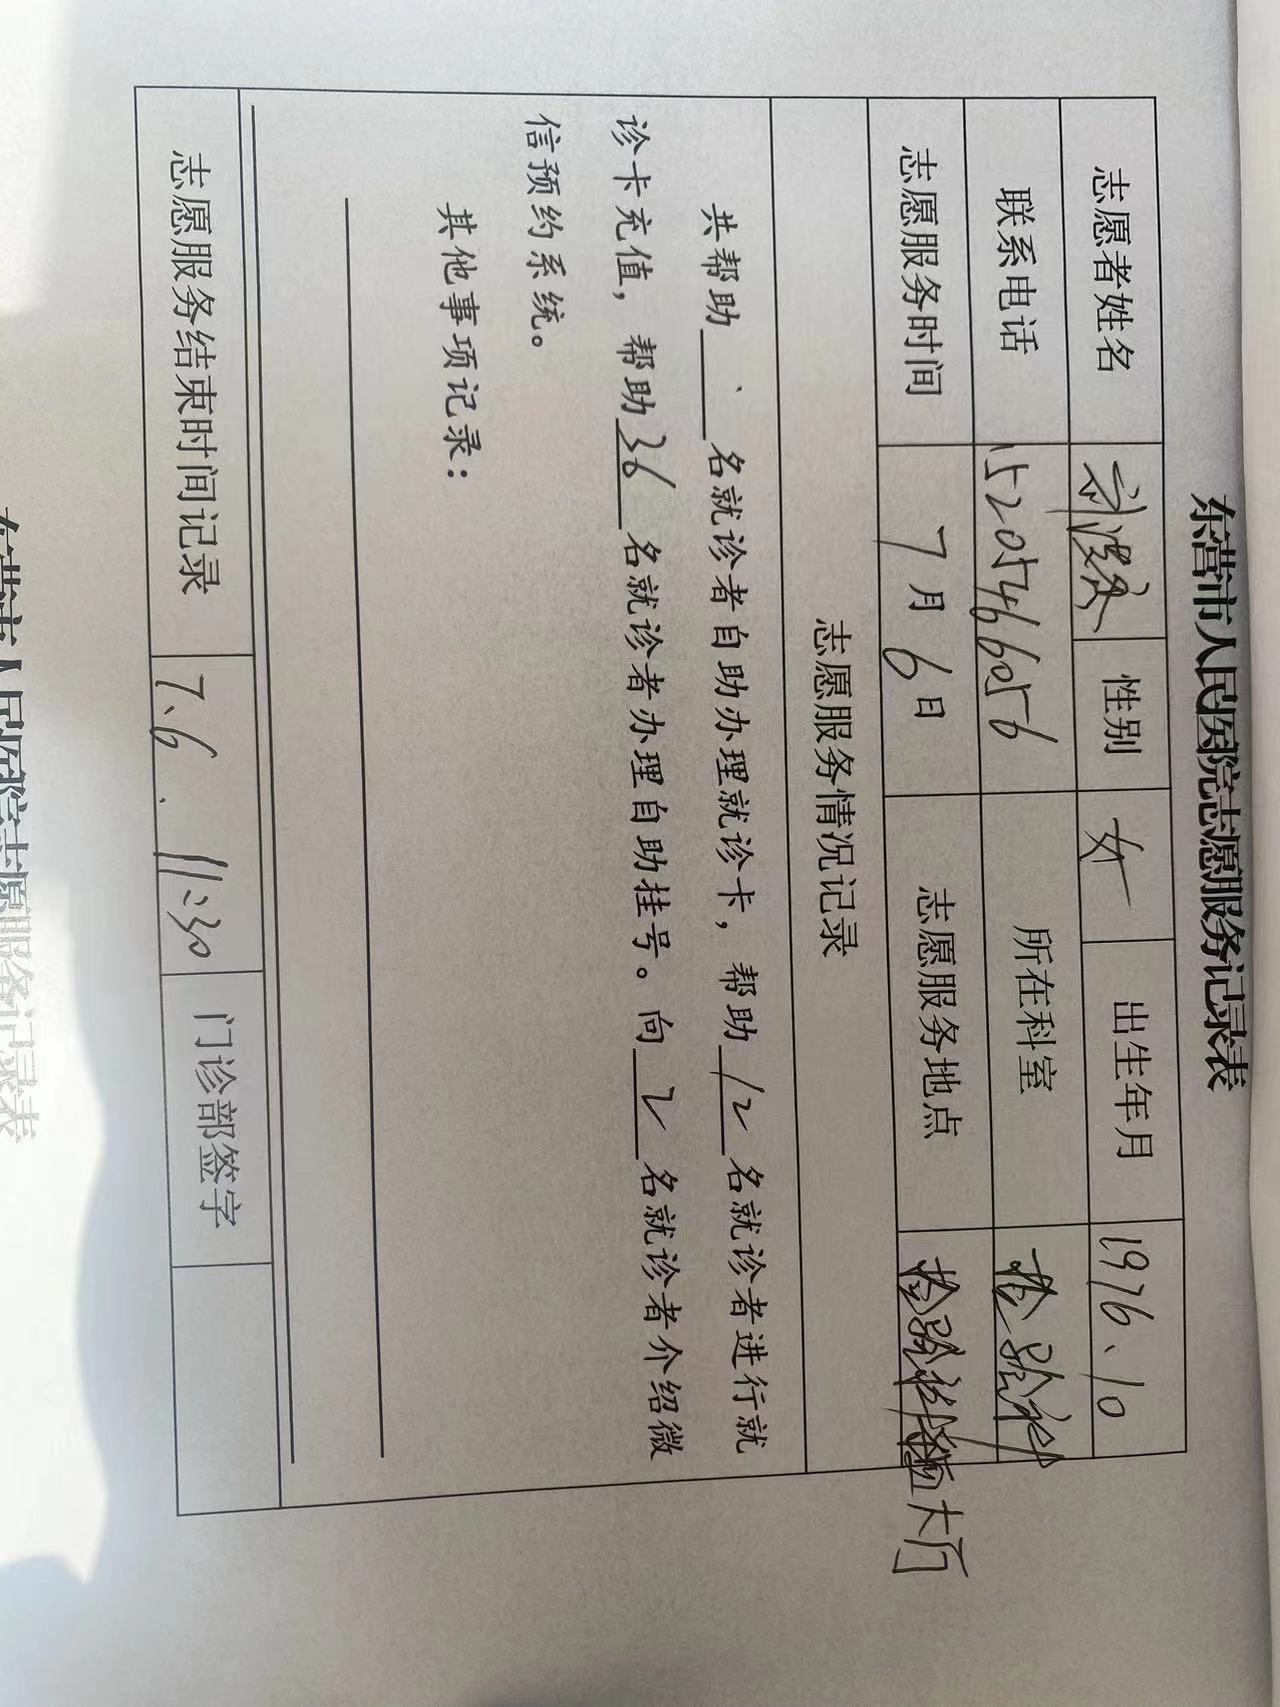 东营市人民医院志愿服务记录表
志愿者姓名 性别 女 出生年月 1976、10
联系电话 15205466056 所在科室 检验科
志愿服务时间 7月6日 志愿服务地点 检验科 大厅
志愿服务情况记录
共帮助 、 名就诊者自助办理就诊卡，帮助 12 名就诊者进行就
诊卡充值，帮助 36 名就诊者办理自助挂号。向 2 名就诊者介绍微
信预约系统。
其他事项记录：
志愿服务结束时间记录 7、6 、 11:30 门诊部签字
东营市人民医院志愿服务记录表